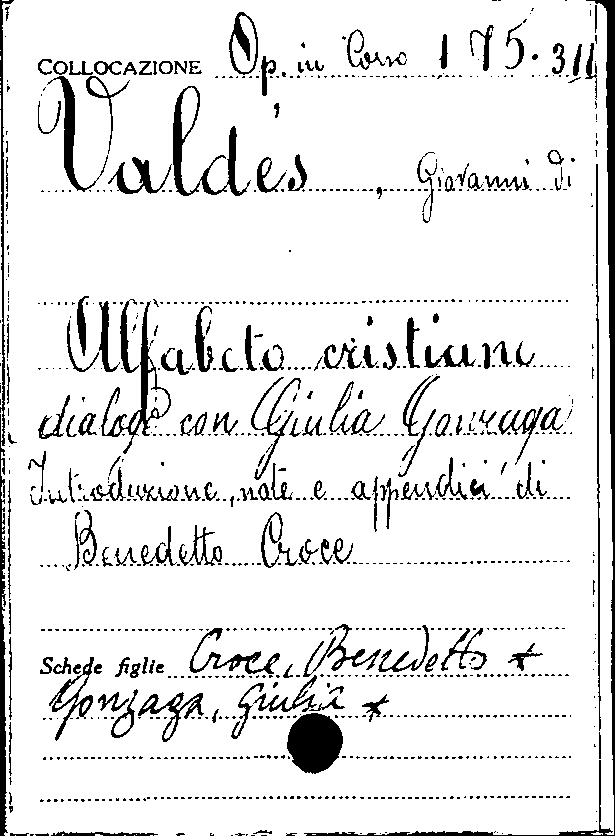 COLLOCAZIONE Op. in Corso 175.311
Valdés, Giovanni di
Alfabeto cristiano
dialogo con Giulia Gonzaga
Introduzione, note e appendici di
Benedetto Croce
Schede figlie Croce, Benedetto *
Gonzaga, Giulia *